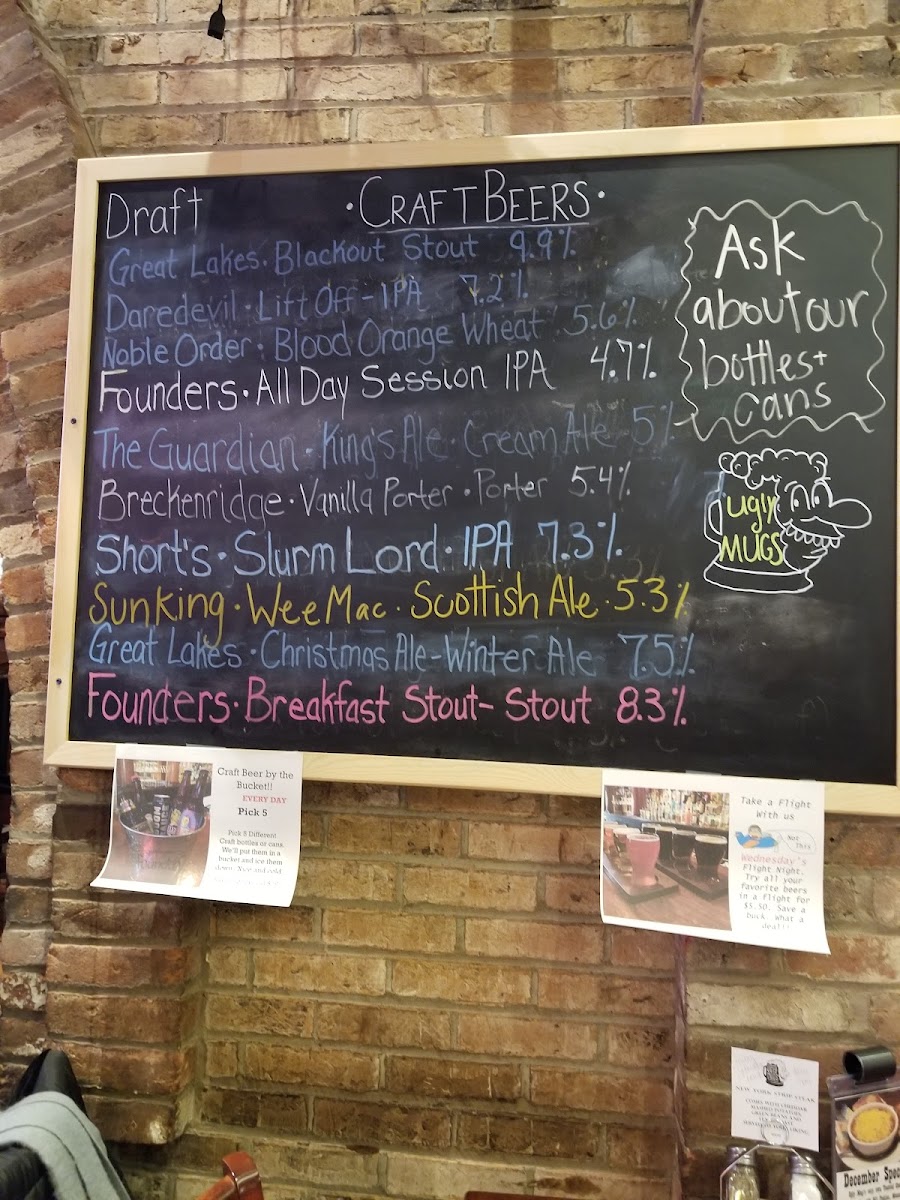 Draft
·CRAFT BEERS·
Great Lakes· Blackout Stout 9.9%
Daredevil · Lift Off - IPA 7.2%
Noble Order · Blood Orange Wheat 5.6%
Founders · All Day Session IPA 4.7%
The Guardian - King's Ale · Cream Ale 5%
Breckenridge · Vanilla Porter · Porter 5.4%
Short's · Slurm Lord · IPA 7.3%
Sunking · Wee Mac · Scottish Ale · 5.3%
Great Lakes · Christmas Ale - Winter Ale 7.5%
Founders · Breakfast Stout - Stout 8.3%
Ask
about our
bottles +
cans
ugly
MUGS
Craft Beer by the
Bucket!!
EVERY DAY
Pick 5
Pick 5 Different
Craft bottles or cans.
We'll put them in a
bucket and ice them
down. Nice and cold.
Take a Flight
With us
Not
This
Wednesday's
Flight Night.
Try all your
favorite beers
in a Flight for
$5.50. Save a
buck. What a
deal!!
NEW YORK STRIP STEAK
December Spec